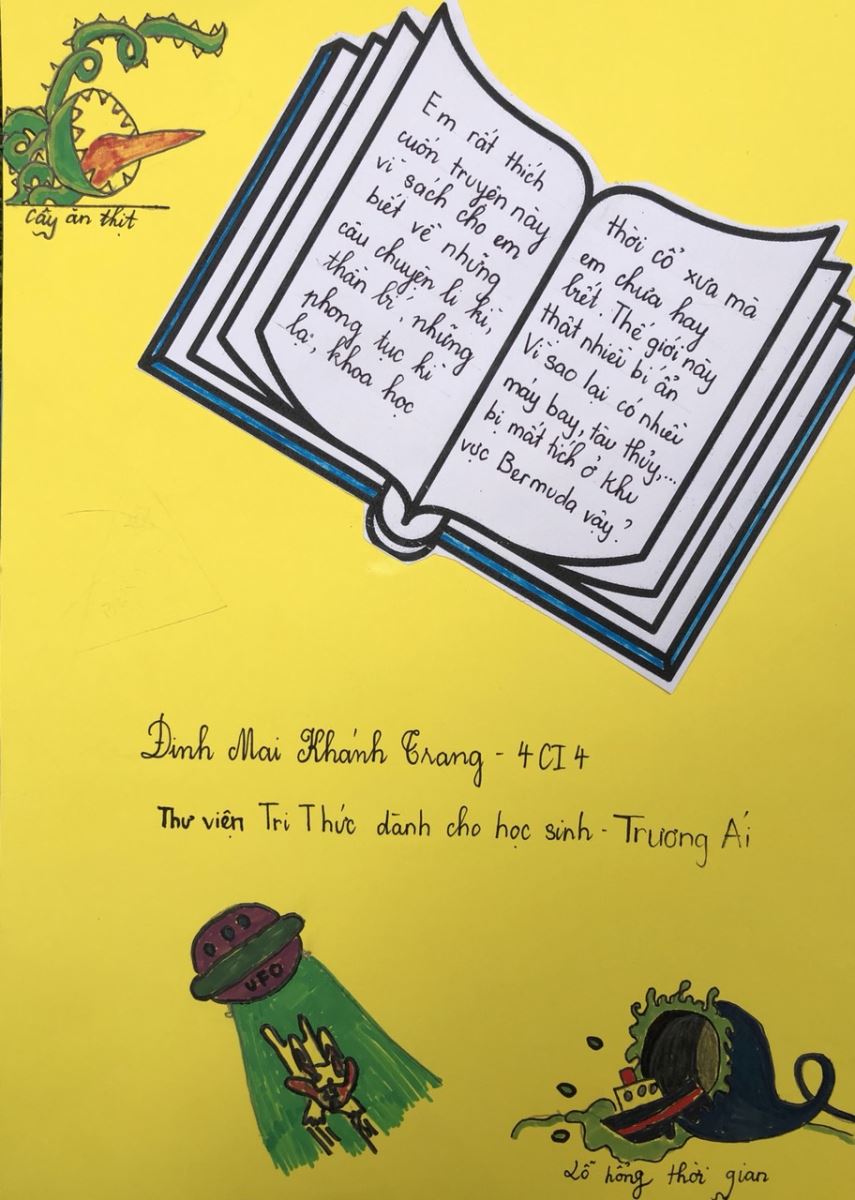 Cây ăn thịt
Em rất thích
cuốn truyện này
vì sách cho em
biết về những
câu chuyện li kì,
thần bí, những
phong tục kì
lạ, khoa học
thời cổ xưa mà
em chưa hay
biết. Thế giới này
thật nhiều bí ẩn
Vì sao lại có nhiều
máy bay, tàu thủy,...
bị mất tích ở khu
vực Bermuda vậy?
Đinh Mai Khánh Trang - 4CI4
Thư viện Tri Thức dành cho học sinh - Trương Ái
UFO
Lỗ hổng thời gian